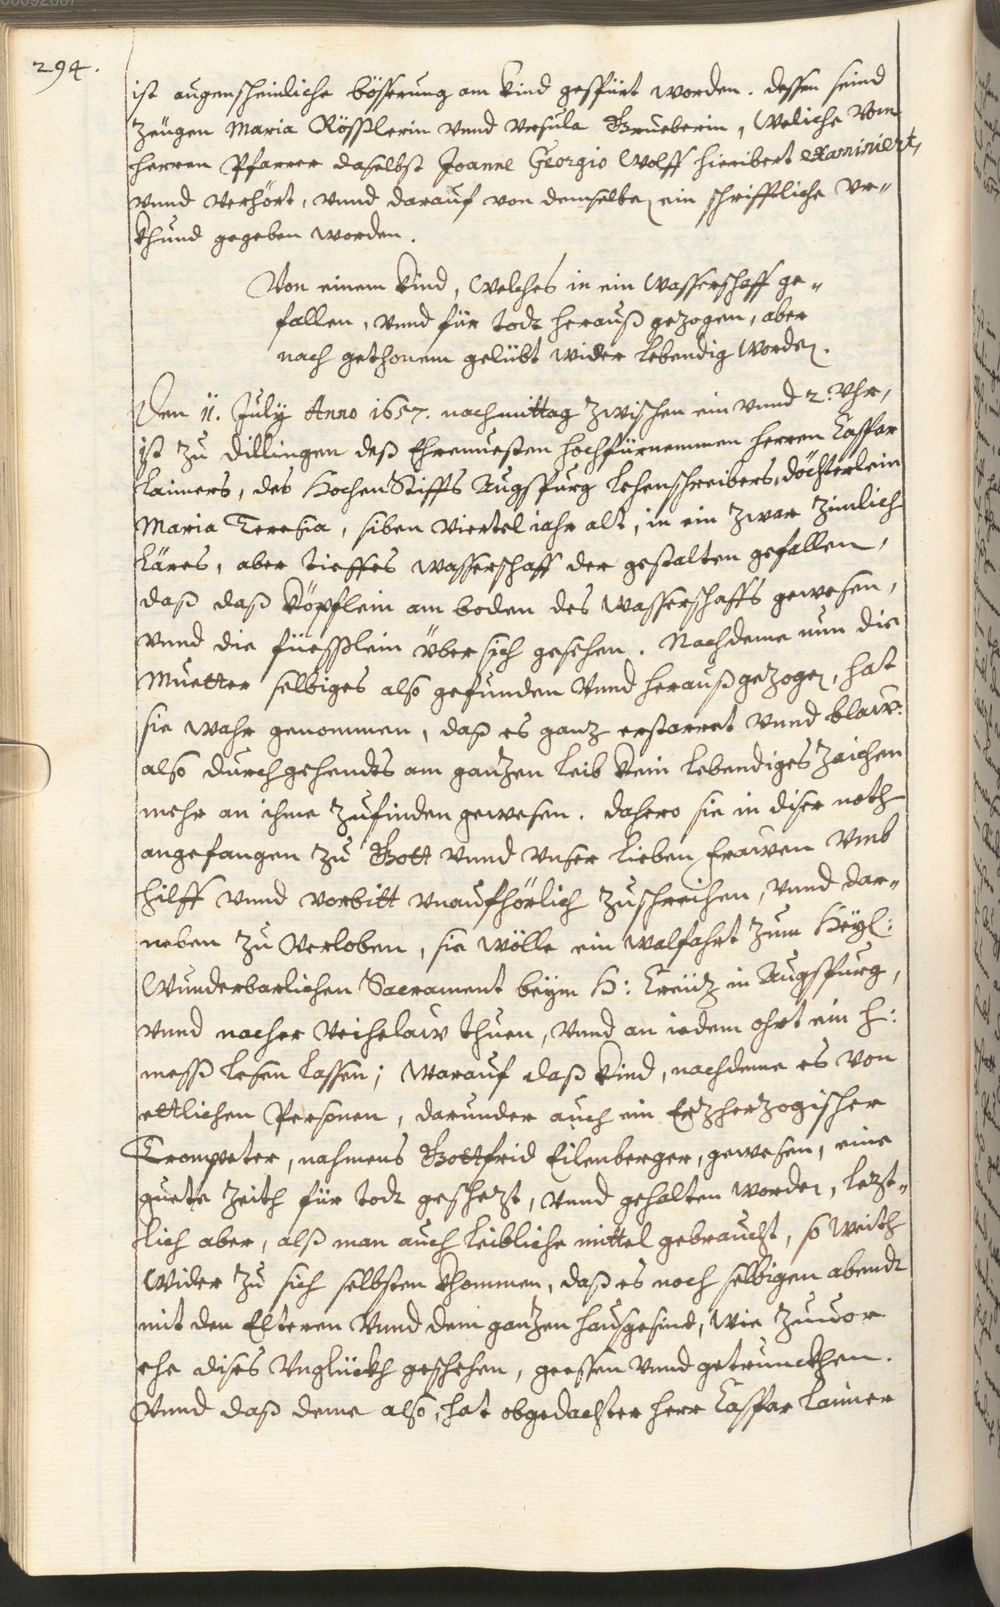 294.
ist augenscheinliche bösserung am kind gespürt worden. dessen seind
Zeugen Maria Rösslerin vnnd Vrsula Grueberin, Weliche vom
herren Pfarrer daselbst Joanne Georgio Wolff hieribert examiniert,
vnnd verhört, vnnd darauf von demselben ein schrifftliche Vr-
khund gegeben worden.
Von einem kind, Welches in ein Wasserschaff ge-
fallen, vnnd für todt herauß gezogen, aber
nach gethonem gelübt wider lebendig worden.
Den 11. July Anno 1657. nachmittag Zwischen ein vnnd 2. Vhr,
ist zu Dillingen deß Ehrnuesten hochfürnemmen herren Casspar
Laimers, des Hochen Stiffts Augspurg Lehenschreibers, döchterlein
Maria Teresia, siben viertel iahr alt, in ein zwar zimlich
läres, aber tieffes wasserschaff der gestalten gefallen,
daß daß köpflein am boden des wasserschaffs gewesen,
vnnd die füesslein über sich gesehen. Nachdeme nun die
Muetter selbiges also gefunden vnnd herauß gezogen, hat
sie wahr genommen, daß es ganz erstarret vnnd blaw:
also durchgehendts am ganzen leib kein lebendiges Zaichen
mehr an ihme zufinden gewesen. dahero sie in diser noth
angefangen zu Gott vnnd vnser lieben Frawen vmb
hilff vnnd vorbitt vnaufhörlich zuschreihen, vnnd dar-
neben zu verloben, sie wölle ein walfahrt zum Heyl:
Wunderbarlichen Sacrament beym H: Creüz in Augspurg,
vnnd nacher Veihelaw thuen, vnnd an iedem ohrt ein h:
mess lesen lassen; Warauf daß kind, nachdeme es von
ettlichen Personen, darunder auch ein Erzherzogischer
Trompeter, nahmens Gottfrid Eilenberger, gewesen, eine
guete Zeith für todt geschezt, vnnd gehalten worden, lezst-
lich aber, alß man auch leibliche mittel gebraucht, so weith
Wider zu sich selbsten khommen, daß es noch selbigen abendt
mit den Elteren vnnd dem ganzen hausgesind, wie zuuor
ehe dises Vnglückh geschehen, geessen vnnd getrunckhen.
Vnnd daß deme also, hat obgedachter herr Casspar Laimer